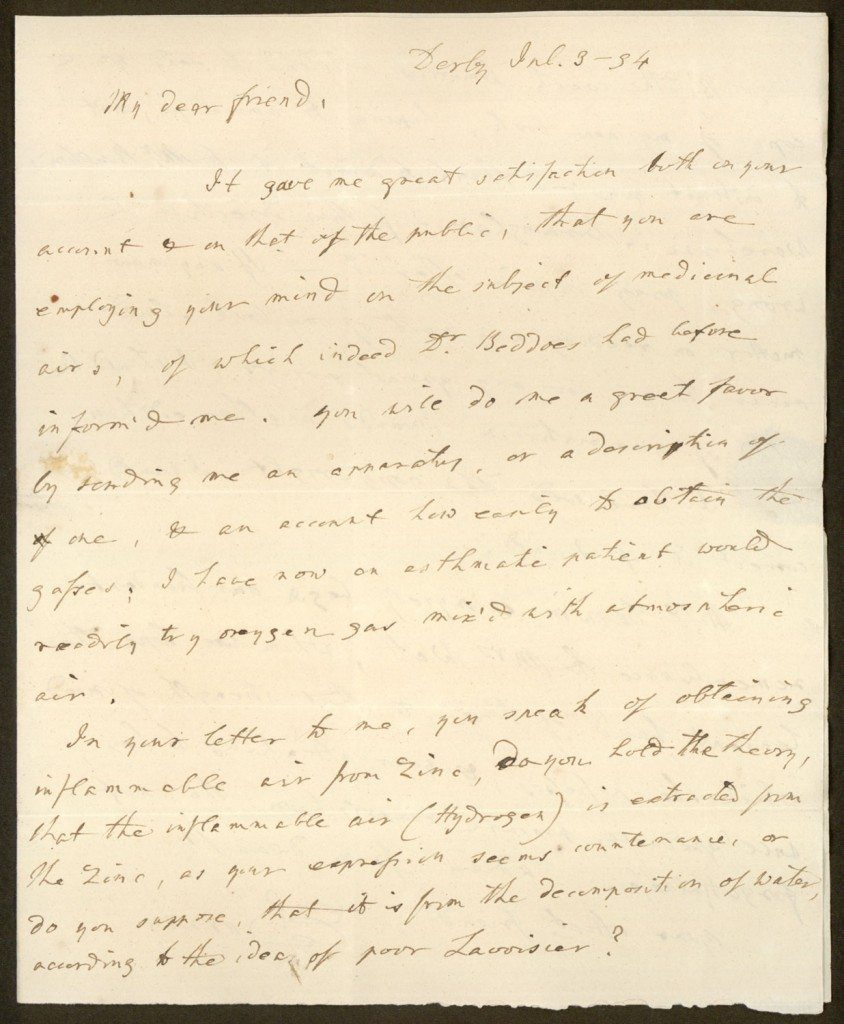 Derby Jul. 3-94
My dear friend,
It gave me great satisfaction both on your
account & on that of the public, that you are
employing your mind on the subject of medicinal
airs, of which indeed Dr. Beddoes had before
inform'd me. You will do me a great favor
by sending me an apparatus, or a description of
of one, & an account how easily to obtain the
gasses; I have now an asthmatic patient would
readily try oxygen gas mix'd with atmospheric
air.
In your letter to me, you speak of obtaining
inflammable air from Zinc, Do you hold the theory,
that the inflammable air (Hydrogen) is extracted from
the Zinc, as your expression seems countenance, or
do you suppose, that it is from the decomposition of water,
according to the idea of poor Lavoisier?